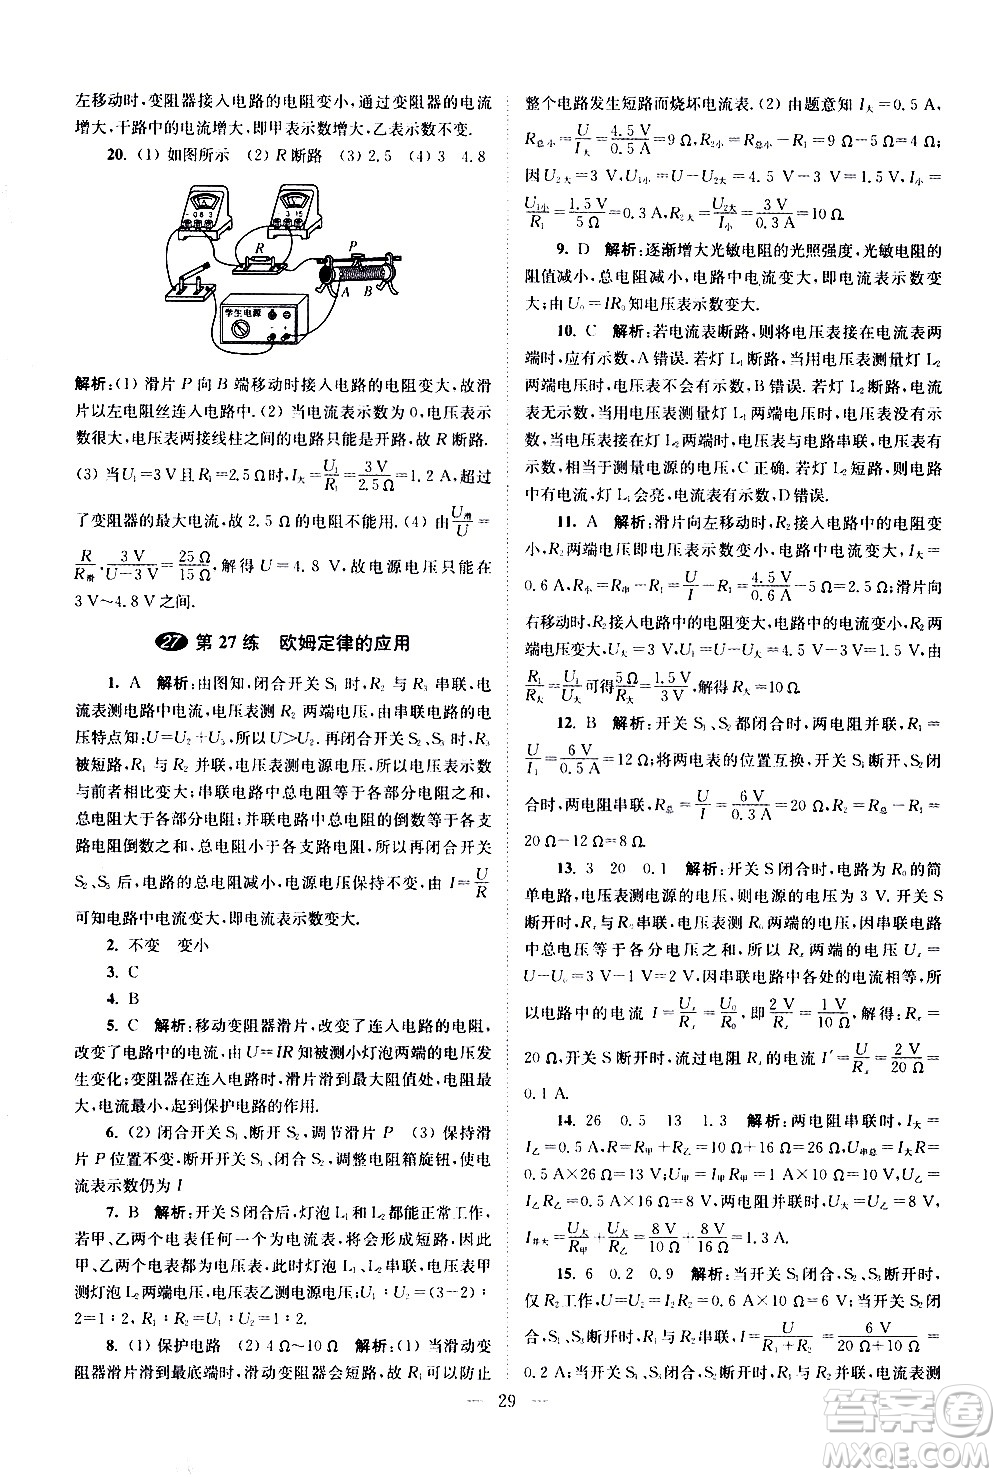 左移动时,变阻器接入电路的电阻变小,通过变阻器的电流
增大,干路中的电流增大,即甲表示数增大,乙表示数不变.
20. (1) 如图所示 (2) R 断路 (3) 2.5 (4) 3 4.8
学生电源
R
P
A
B
解析:(1) 滑片 P 向 B 端移动时接入电路的电阻变大,故滑
片以左电阻丝连入电路中.(2) 当电流表示数为 0,电压表示
数很大,电压表两接线柱之间的电路只能是开路,故 R 断路.
(3) 当 U₁=3 V 且 R₁=2.5 Ω 时,I大=U₁/R₁=3 V/2.5 Ω=1.2 A,超过
了变阻器的最大电流,故 2.5 Ω 的电阻不能用.(4) 由 U滑/U=
R/R滑·3 V/(U−3 V)=25 Ω/15 Ω,解得 U=4.8 V,故电源电压只能在
3 V~4.8 V 之间.
27 第 27 练 欧姆定律的应用
1. A 解析:由图知,闭合开关 S₁ 时,R₂ 与 R₃ 串联,电
流表测电路中电流,电压表测 R₂ 两端电压,由串联电路的电
压特点知:U=U₂+U₃,所以 U>U₂.再闭合开关 S₂、S₃ 后,R₃
被短路,R₁ 与 R₂ 并联,电压表测电源电压,所以电压表示数
与之前相比变大;串联电路中总电阻等于各部分电阻之和,
总电阻大于各部分电阻;并联电路中总电阻的倒数等于各支
路电阻倒数之和,总电阻小于任一支路电阻;所以再闭合开关
S₂、S₃ 后,电路的总电阻变小,且电源电压保持不变,由 I=U/R
可知电路中电流变大,即电流表示数变大.
2. 不变 变小
3. C
4. B
5. C 解析:移动变阻器滑片,改变了连入电路的电阻,
改变了电路中的电流,由 U=IR 知被测小灯泡两端的电压发
生变化;变阻器在连入电路时,滑片滑到最大阻值处,电阻最
大,电流最小,起到保护电路的作用.
6. (2) 闭合开关 S₁、断开 S₂,调节滑片 P (3) 保持滑
片 P 位置不变,断开开关 S₁、闭合 S₂,调整电阻箱旋钮,使电
流表示数仍为 I
7. B 解析:开关 S 闭合后,灯泡 L₁ 和 L₂ 都能正常工作,
若甲、乙两个电表有一个电流表,都会形成短路,所以只有
甲、乙两个电表都为电压表时,灯泡才能都工作,电压表甲
测灯泡 L₂ 两端电压,电压表乙测电源电压:U₁∶U₂=(3−2)∶
2=1∶2,由欧姆定律得两灯泡电阻之比:R₁∶R₂=U₁∶U₂=1∶2.
8. (1) 保护电路 (2) 4 Ω~10 Ω 解析:当滑动变
阻器滑片滑到最底端时,滑动变阻器短路,故 R₁ 可以防止
整个电路发生短路而烧坏电流表.(2) 由题意知 I大=0.5 A,
R总小=U/I大=4.5 V/0.5 A=9 Ω,R₂小=R总小−R₁=9 Ω−5 Ω=4 Ω;
因 U₂大=3 V,U₁小=U−U₂大=4.5 V−3 V=1.5 V,I小=
U₁小/R₁=1.5 V/5 Ω=0.3 A,R₂大=U₂大/I小=3 V/0.3 A=10 Ω.
9. D 解析:逐渐增大光敏电阻的光照强度,光敏电阻的
阻值减小,总电阻减小,电路中电流变大,即电流表示数变
大;由 U₀=IR₀ 知电压表示数变大.
10. C 解析:若电流表断路,则将电压表接在电流表两
端时,应有示数,A 错误.若灯 L₁ 断路,将电压表测量灯 L₂
两端电压时,电压表无示数,B 错误.若灯 L₂ 断路,电流表
没有示数,灯 L₁ 不亮;用电压表测量灯 L₁ 两端电压时,电压表
没有示数;接在灯 L₂ 两端时,电压表与电路串联,电压表有
示数,相当于测量电源的电压,C 正确.若灯 L₂ 短路,电路
中有电流,灯 L₁ 会亮,电流表有示数,D 错误.
11. A 解析:滑片向左移动时,R₂ 接入电路中的电阻变
小,R₂ 两端电压即电压表示数变小,电路中电流变大,I大=
0.6 A,此时 U₂=0,则 R₁=U/I=4.5 V/0.6 A=7.5 Ω;滑片向
右移动时,R₂ 接入电路中的电阻变大,电路中电流变小,R₂
两端电压变大,U大=3 V,U₁=U−U大=4.5 V−3 V=1.5 V,由
R₁/R大=U₁/U大 可得 7.5 Ω/R大=1.5 V/3 V,解得 R大=15 Ω.
12. B 解析:开关 S₁、S₂ 都闭合时,两电阻并联,R₁=
U/I₁=6 V/0.5 A=12 Ω;将两电表的位置互换,开关 S₁ 断开、S₂ 闭
合时,两电阻串联,R总=U/I=6 V/0.3 A=20 Ω,R₂=R总−R₁=
20 Ω−12 Ω=8 Ω.
13. 3 20 0.1 解析:开关 S 闭合时,电路为 R₀ 的简
单电路,电压表测电源的电压,则电源的电压为 3 V.开关 S
断开时,Rₓ 与 R₀ 串联,电压表测 R₀ 两端的电压,因串联电路
中总电压等于各分电压之和,所以 Rₓ 两端的电压 Uₓ=
U−U₀=3 V−1 V=2 V.因串联电路中各处的电流相等,所
以电路中的电流 I=Uₓ/Rₓ=U₀/R₀,即 2 V/Rₓ=1 V/10 Ω,解得 Rₓ=
20 Ω.开关 S 断开时,流过电阻 Rₓ 的电流 I′=U/Rₓ=2 V/20 Ω=
0.1 A.
14. 26 0.5 13 1.3 解析:两电阻串联时,I大=
I乙=0.5 A,R总=R甲+R乙=10 Ω+16 Ω=26 Ω,U串总=I大R总=
0.5 A×26 Ω=13 V;U甲=I甲R甲=1 A×10 Ω=10 V,U乙=
I乙R乙=0.5 A×16 Ω=8 V,两电阻并联时,U大=U乙=8 V,
I并大=U大/R甲+U大/R乙=8 V/10 Ω+8 V/16 Ω=1.3 A.
15. 6 0.2 0.9 解析:当开关 S₁ 闭合、S₂、S₃ 断开时,
仅 R₂ 工作,U=I R₂=0.3 A×20 Ω=6 V;当开关 S₃ 闭合、S₁、S₂
断开时,R₁ 与 R₂ 串联,I=U/(R₁+R₂)=6 V/(10 Ω+20 Ω)=
0.2 A;当开关 S₁、S₂ 闭合,S₃ 断开时,R₁、R₂ 并联,电流表测
29
答案圈
MXQE.COM